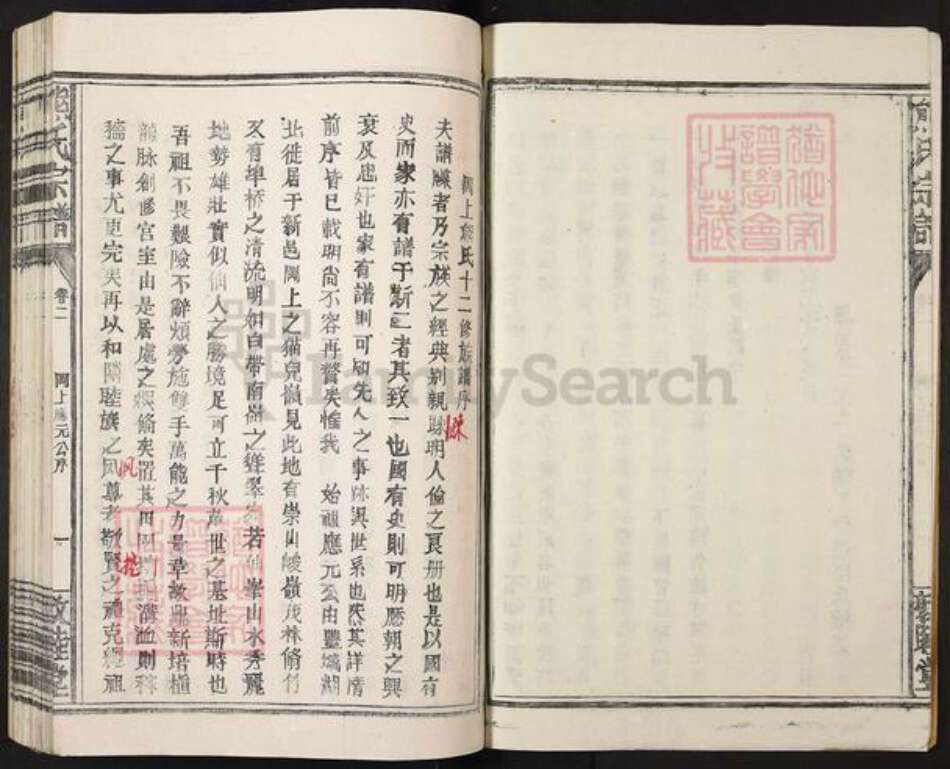 熊氏宗譜
猶他家譜學會收藏
岡上熊氏十二修族譜序
夫譜牒者乃宗族之經典別親疎明人倫之良册也是以國有
史而家亦有譜于斯二者其致一也國有史則可明歷朝之興
衰及忠奸也家有譜則可知先人之事跡與世系也然其詳情
前序皆已載明尚不容再贅矣惟我 始祖應元公由豐城湖
北徙居于新邑岡上之猫兒嶺見此地有崇山峻嶺茂林脩竹
又有埠橋之清流明如白帶南嶺之聳翠 若仙峯山水秀麗
地勢雄壯實似仙人之勝境足可立千秋萬世之基址斯時也
吾祖不畏艱險不辭煩勞施雙手萬能之力量革故鼎新培植
龍脉創修宮室由是居處之 脩矣置其田園 溝洫則稼
穡之事尤更完美再以和隣睦族之風尊老敬賢之禮克繩祖
疎
風
熊氏宗譜
卷二
岡上應元公序
一
敦睦堂
敦睦堂
FamilySearch